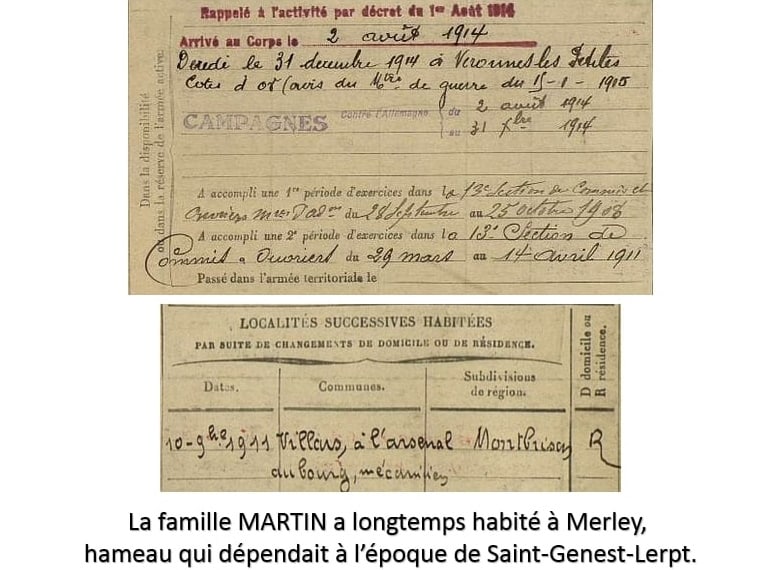 Rappelé à l'activité par décret du 1er Août 1914
Arrivé au Corps le 2 août 1914
Décédé le 31 décembre 1914 à Veronnes les Petites
Cotes d'or (avis du Mtre de guerre du 15-1-1915
CAMPAGNES Contre l'Allemagne du 2 août 1914
au 31 Xbre 1914
Dans la disponibilité
ou dans la réserve de l'armée active.
A accompli une 1re période d'exercices dans la 13e Section de Commis et
Ouvriers du 28 Septembre au 25 octobre 1908
A accompli une 2e période d'exercices dans la 13e Section de
Commis & Ouvriers du 29 mars au 14 avril 1911
Passé dans l'armée territoriale le
LOCALITÉS SUCCESSIVES HABITÉES
PAR SUITE DE CHANGEMENTS DE DOMICILE OU DE RÉSIDENCE.
D domicile ou
R résidence.
Dates. Communes. Subdivisions
de région.
10-9bre 1911 Villars, à l'arsenal Montbrison R
du bourg, mécanicien
La famille MARTIN a longtemps habité à Merley,
hameau qui dépendait à l'époque de Saint-Genest-Lerpt.